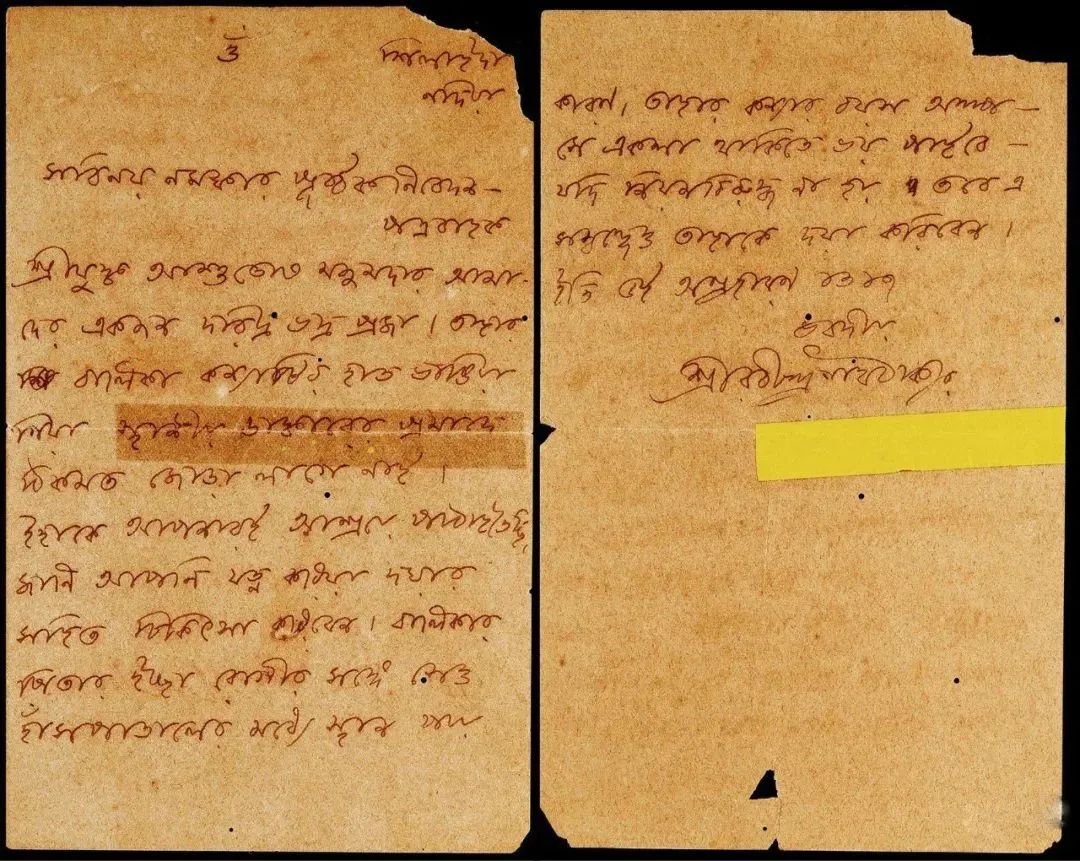 ওঁ
শিলাইদা
নদিয়া
সবিনয় নমস্কার পূর্ব্বক নিবেদন—
পত্রবাহক
শ্রীযুক্ত আশুতোষ মজুমদার আমা-
দের একজন দরিদ্র ভদ্র প্রজা। তাহার
বালিকা কন্যাটির হাত ভাঙিয়া
গিয়া স্থানীয় ডাক্তারের প্রমাদে
ঠিকমত জোড়া লাগে নাই।
ইহাকে আপনারই আশ্রয়ে পাঠাইতেছি
জানি আপনি যত্ন করিয়া দয়ার
সহিত চিকিৎসা করিবেন। বালিকার
পিতার ইচ্ছা রোগীর সঙ্গে সেও
হাঁসপাতালের মধ্যে স্থান পায়
কারণ, তাহার কন্যার বয়স অল্প—
সে একলা থাকিতে ভয় পাইবে—
যদি নিয়মবিরুদ্ধ না হয় তবে এ
সম্বন্ধেও তাহাকে দয়া করিবেন।
ইতি ৫ই অগ্রহায়ণ ১৩১৭
ভবদীয়
শ্রীরবীন্দ্রনাথ ঠাকুর